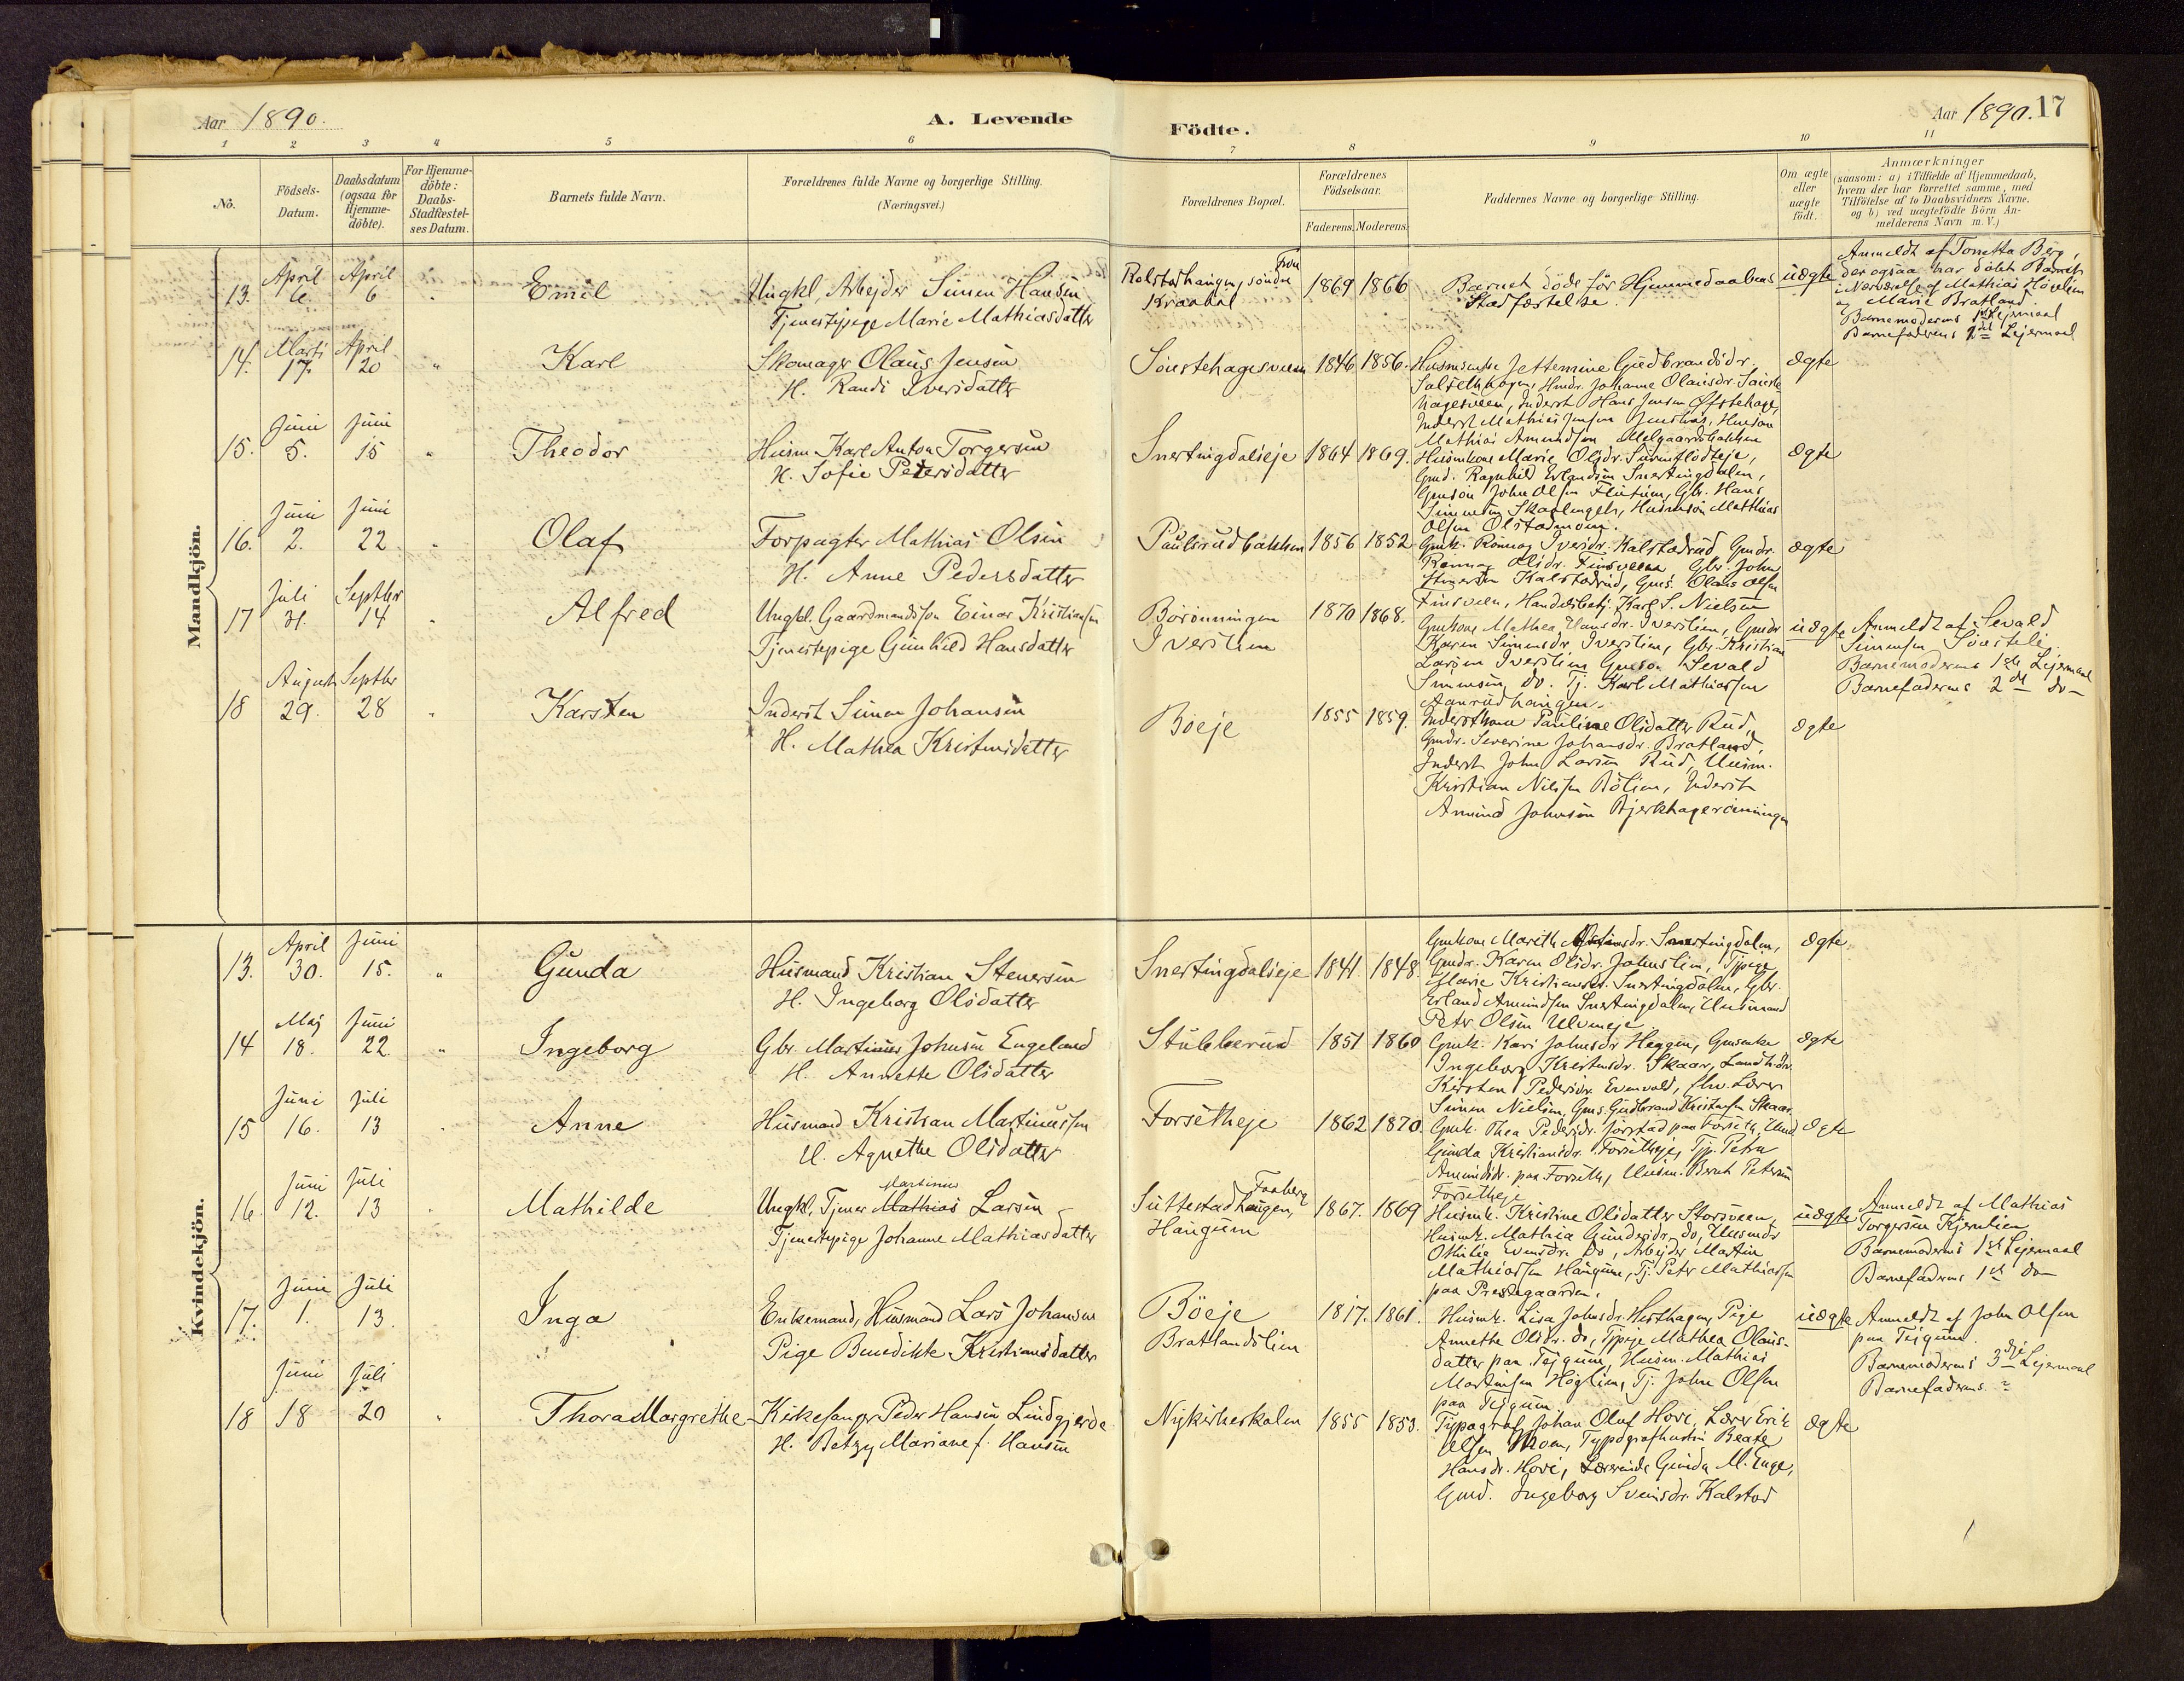 Aar 1890.
A. Levende
Födte.
Aar 1890. 17
1 2 3 4 5 6 7 8 9 10 11
No.
Födsels-
Datum.
Daabsdatum
(ogsaa for
Hjemme-
döbte).
For Hjemme-
döbte:
Daabs-
Stadfæstel-
ses Datum.
Barnets fulde Navn.
Forældrenes fulde Navne og borgerlige Stilling.
(Næringsvei.)
Forældrenes Bopæl.
Forældrenes
Födselsaar.
Faderens. Moderens.
Faddernes Navne og borgerlige Stilling.
Om ægte
eller
uægte
födt.
Anmærkninger
(saasom: a) i Tilfælde af Hjemmedaab,
hvem der har forrettet samme, med
Tilföielse af to Daabsvidners Navne,
og b) ved uægtefödte Börn An-
melderens Navn m. V.)
Mandkjön.
13. April 6. April 6 " Emil
Ungkl, Arbejder Simen Hansen
Tjenestepige Marie Mathiasdatter
Rolstadhaugen, söndre Fron
Kraabøl
1869 1866
Barnet döde för Hjemmedaabens
Stadfæstelse.
uægte
Anmeldt af Tonetta Berg,
der ogsaa har döbt Barnet
i Nærværelse af Mathias Hövelien
og Marie Bratland.
Barnemoderens 1ste Lejermaal
Barnefaderens 2det Lejermaal
14. Marts 17. April 20 " Karl
Skomager Olaus Jensen
H. Randi Iversdatter
Soustehagesveen 1846 1856.
Husmenke Jettemine Gudbrandsdr.
Salsethhagen, Hmdr. Johanne Olausdr. Souste
hagesveen, Inderst Hans Jensen Øfstehage,
Inderst Mathias Jensen Huson
Mathias Amundsen Melgaardsbakken
ægte
15. Juni 5. Juni 15 " Theodor
Husm. Karl Anton Torgersen
H. Sofie Petersdatter
Snertingdalseje 1864 1869.
Husmkone Marie Olsdr. Sveumflodteje,
Gmd. Ragnhild Erlandsen Snertingdalen,
Gmson John Olsen Flutuen, Gbr. Hans
Simensen Skaalengeh, Husmson Matthias
Olsen Olstadmoen.
ægte
16. Juni 2. Juni 22 " Olaf
Forpagter Mathias Olsen
H. Anne Pedersdatter
Paulsrudbakken 1856 1852
Gmk. Rönnog Iversdr. Kalstadrud, Gmdr.
Rönnog Olsdr. Finsveen Gbr. John
Simensen Kalstadrud, Gms. Olaus Olsen
Finsveen, Handelsbetj. Karl S. Nielsen
ægte
17 Juli 31. Septbr 14 " Alfred
Ungkl. Gaardmandssön Einar Kristiansen
Tjenestepige Gunhild Hansdatter
Börönningen
Iverslien
1870 1868.
Gmkone Mathea Hansdr. Iverslien, Gmdr
Karen Simensdr. Iverslien, Gbr. Kristian
Larsen Iverslien Gmson Sevald
Simensen do. Tj. Karl Mathiassen
Aanrudhaugen.
uægte
Anmeldt af Sevald
Simensen Sousteli.
Barnemoderens 1ste Lejermaal
Barnefaderens 2det do
18 August 29. Septbr 28 " Karsten
Inderst Simen Johansen
H. Mathea Kristensdatter
Böeje 1855 1859.
Inderstkone Pauline Olsdatter Rud,
Gmdr. Severine Johansdr. Bratland,
Inderst John Larsen Rud, Husm.
Kristian Nilsen Bölien, Inderst
Amund Johnsen Bjerkhagerönningen
ægte
Kvindekjön.
13. April 30. Juni 15. " Gunda
Husmand Kristian Stenersen
H. Ingeborg Olsdatter
Snertingdalseje 1841. 1848.
Gmkone Marith Snertingdalen,
Gmdr. Karen Olsdr. Johnslien, Tjpige
Marie Kristiansdr. Snertingdalen, Gbr.
Erland Amundsen Snertingdalen, Husmand
Peter Olsen Ulvineje
ægte.
14 Maj 18. Juni 22 " Ingeborg
Gbr. Martinus Johnsen Engeland
H. Annette Olsdatter
Stubberud 1851 1860
Gmk. Kari Johnsdr Heggen, Gmenke
Ingeborg Kristensdr. Skaar, Landhdr.
Kirsten Pedersdr. Evenvold, Lærer
Simen Nielsen, Gms. Gudbrand Kristensen Skaar.
ægte
15 Juni 16. Juli 13 " Anne
Husmand Kristian Martinussen
H. Agnethe Olsdatter
Forsetheje 1862 1870.
Gmk. Thea Pedersdr. Jörstad paa Forseth, Hmd.
Gunda Kristiansdr. Forsetheje, Tjp. Petra
Amundsdr. paa Forseth, Husm. Bernt Petersen
Forsetheje
ægte
16. Juni 12. Juli 13 " Mathilde
Martinus
Ungkl, Tjener Mathias Larsen
Tjenestepige Johanne Mathiasdatter
Suttestadhaugen, Faaberg
Haugum
1867. 1869
Husmk. Kristine Olsdatter Storsveen,
Husmk. Mathea Gundersdr. do, Husmdr
Othilie Evensdr. do, Arbejder Martin
Mathiassen Haugum, Tj. Peter Mathiassen
paa Prestegaarden.
uægte
Anmeldt af Mathias
Torgersen Kjernlien
Barnemoderens 1ste Lejermaal
Barnefaderens 1ste do
17. Juni 1. Juli 13. Inga
Enkemand, Husmand Lars Johansen
Pige Benedikte Kristiansdatter
Böeje
Bratlandslien
1817. 1861.
Husmk. Lisa Johnsdr. Hesthagen, Pige
Annethe Olsdr. do, Tjpige Mathea Olaus-
datter paa Tejgum, Husm. Mathias
Mortensen Höglien, Tj. John Olsen
paa Tejgum.
uægte
Anmeldt af John Olsen
paa Tejgum.
Barnemoderens 3dje Lejermaal
Barnefaderens ?
18 Juni 18 Juli 20 " Thora Margrethe
Kirkesanger Peder Hansen Lindgjerde
H. Betzy Mariane f. Hansen
Nykirkeskolen 1855 1853.
Typograf Johan Oluf Hovi, Lærer Erik
Olsen Moen, Typografhustru Beate
Hansdr. Hovi, Lærerinde Gunda M. Enge,
Gmd. Ingeborg Svensdr. Kalstad
ægte